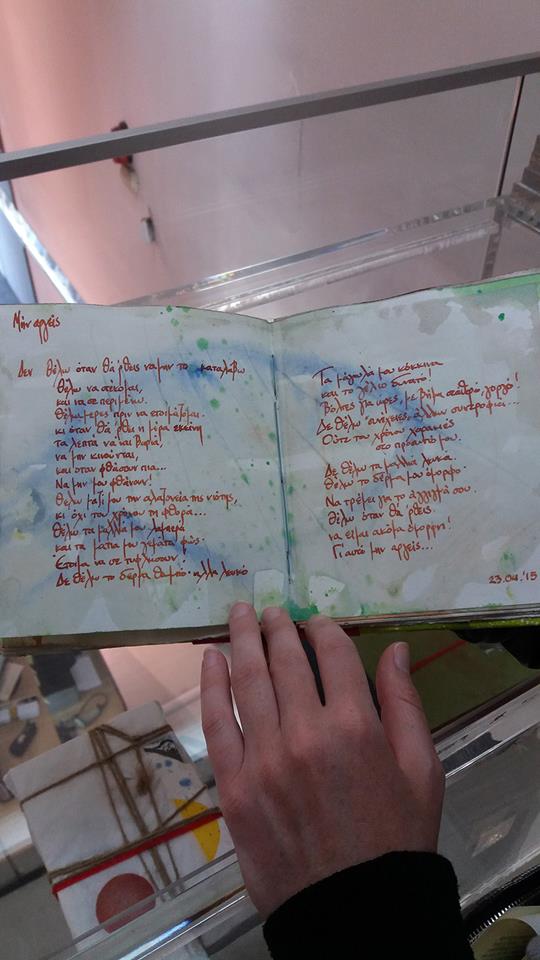 Μην αργείς
Δεν θέλω όταν θα 'ρθεις να μην το καταλάβω
θέλω να στέκομαι,
και να σε περιμένω.
θέλω μέρες πριν να ετοιμάζομαι
κι όταν θα 'ρθει η μέρα εκείνη
τα λεπτά να 'ναι βαριά,
να μην κινούνται,
και όταν φθάσουν πια...
Να μην με φθάνουν!
θέλω μαζί μου την αλαζονεία της νιότης,
κι όχι του χρόνου τη φθορά...
θέλω τα μαλλιά μου λαμπερά
και τα μάτια μου γεμάτα φως.
Έτοιμα να σε τυφλώσουν!
Δε θέλω το δέρμα θαμπό αλλά λευκό
Τα μάγουλά μου κόκκινα
και το γέλιο δυνατό!
Βόλτες για ώρες, με βήμα σταθερό γοργό!
Δε θέλω συνέχειες άλλων συντροφιά...
Ούτε του χρόνου γραμμές
στο πρόσωπό μου.
Δε θέλω τα μαλλιά λευκά.
θέλω το δέρμα μου όμορφο.
Να τρέμει για το άγγιγμά σου.
θέλω όταν θα 'ρθεις
να είμαι ακόμα όμορφη!
Γι αυτό μην αργείς...
23.Οκτ.'15